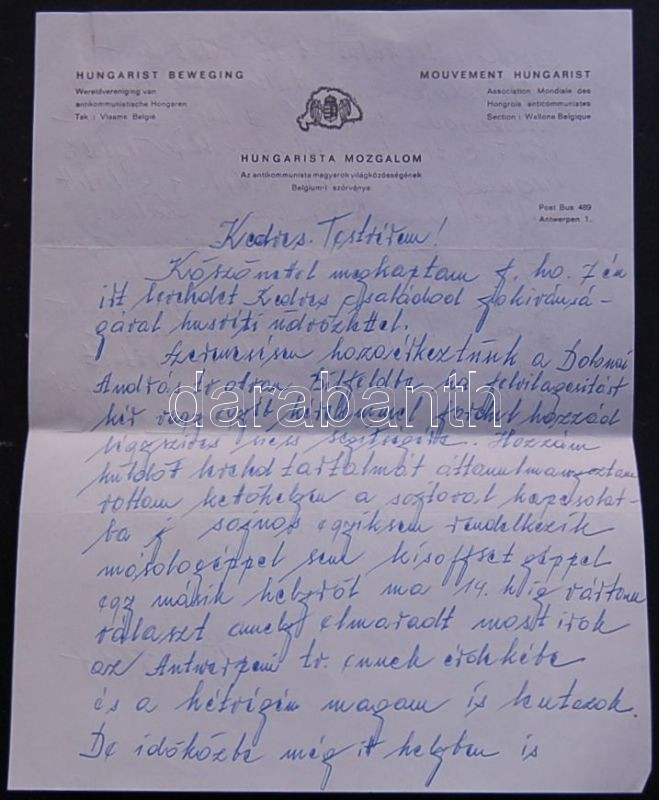 HUNGARIST BEWEGING
Wereldvereniging van
antikommunistische Hongaren
Tak : Vlaams België
MOUVEMENT HUNGARIST
Association Mondiale des
Hongrois anticommunistes
Section : Wallone Belgique
HUNGARISTA MOZGALOM
Az antikommunista magyarok világközösségének
Belgium-i szórványa
Post Bus 489
Antwerpen 1.
Kedves Testvérem!
Köszönettel megkaptam f. hó. 7 én
irt leveledet Kedves családod jokivánsá-
gával husvéti üdvözlettel.
Szerencsésen hazaérkeztünk a Dolonai
András felvilagositást
kér vagy kérelemmel fordul hozzád
légy szives segitségére. Hozzám
küldöt leveled tartalmát áttanulmányoztam
voltam kethelyen a sajtoval kapcsolat-
ba sajnos egyiksem rendelkezik
másologéppel sem kisoffset géppel
egy másik helyről ma 14. h ig vártam
választ amely elmaradt most irok
az Antwerpeni tv. ennek érdekébe
és a hétvégén magam is kutazok.
De időközbe még itt helyben is
darabanth